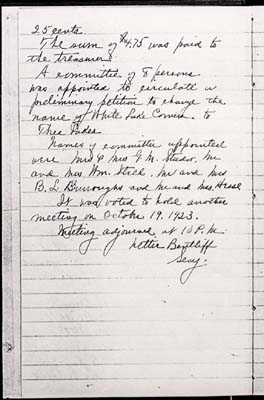 25 cents
The sum of $4.75 was paid to
the treasurer.
A committee of 8 persons
was appointed to circulate a
preliminary petition to change the
name of White Lake Corners to
Three Lakes
Names of committee appointed
were Mr & Mrs G. M. Studor, Mr
and Mrs Wm. Stick, Mr and Mrs
B. L. Burroughs and Mr and Mrs.
It was voted to hold another
meeting on October 19, 1923.
Meeting adjourned at 10 P.M.
Lettie Bentliff
Secy.